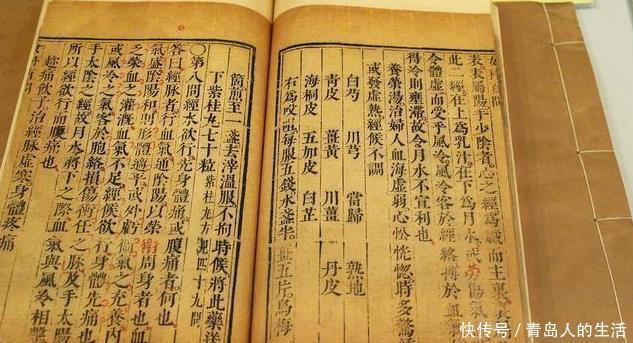 表表屬陽手少陰者心之經爲臟而主裏裏
此二經在上爲乳汁在下爲月水或勞傷氣
令體虛而受乎風冷風冷客於經絡搏於血
得冷則壅滯故令月水不宣利也
養榮湯治婦人血海虛弱心忪恍惚時多驚
或發虛熱經候不調
白芍 川芎 當歸 熟地
青皮 薑黃 川薑 丹皮
海桐皮 五加皮 白芷
右爲㕮咀每服五錢水盞半薑五片烏梅
箇煎至一盞去滓溫服不拘時候將此藥洋
下紫桂丸七十粒紫桂丸方見四十九問
〇第八問經水欲行先身體痛或腹痛者何也
答曰經脉者行血氣通陰陽以榮衛周身者也血
氣盛陰陽和則形體適平或外虧衛氣之充養内
乏榮血之灌漑血氣不足經候欲行身體先痛也
或風冷之氣客於胞絡損傷衝任之脉及手太陽
手太陰之經故月水將下之際血氣與風冷相擊
所以經欲行而腹痛也
趁痛飲子治經脉虛寒身體疼痛
快传号/青岛人的生活